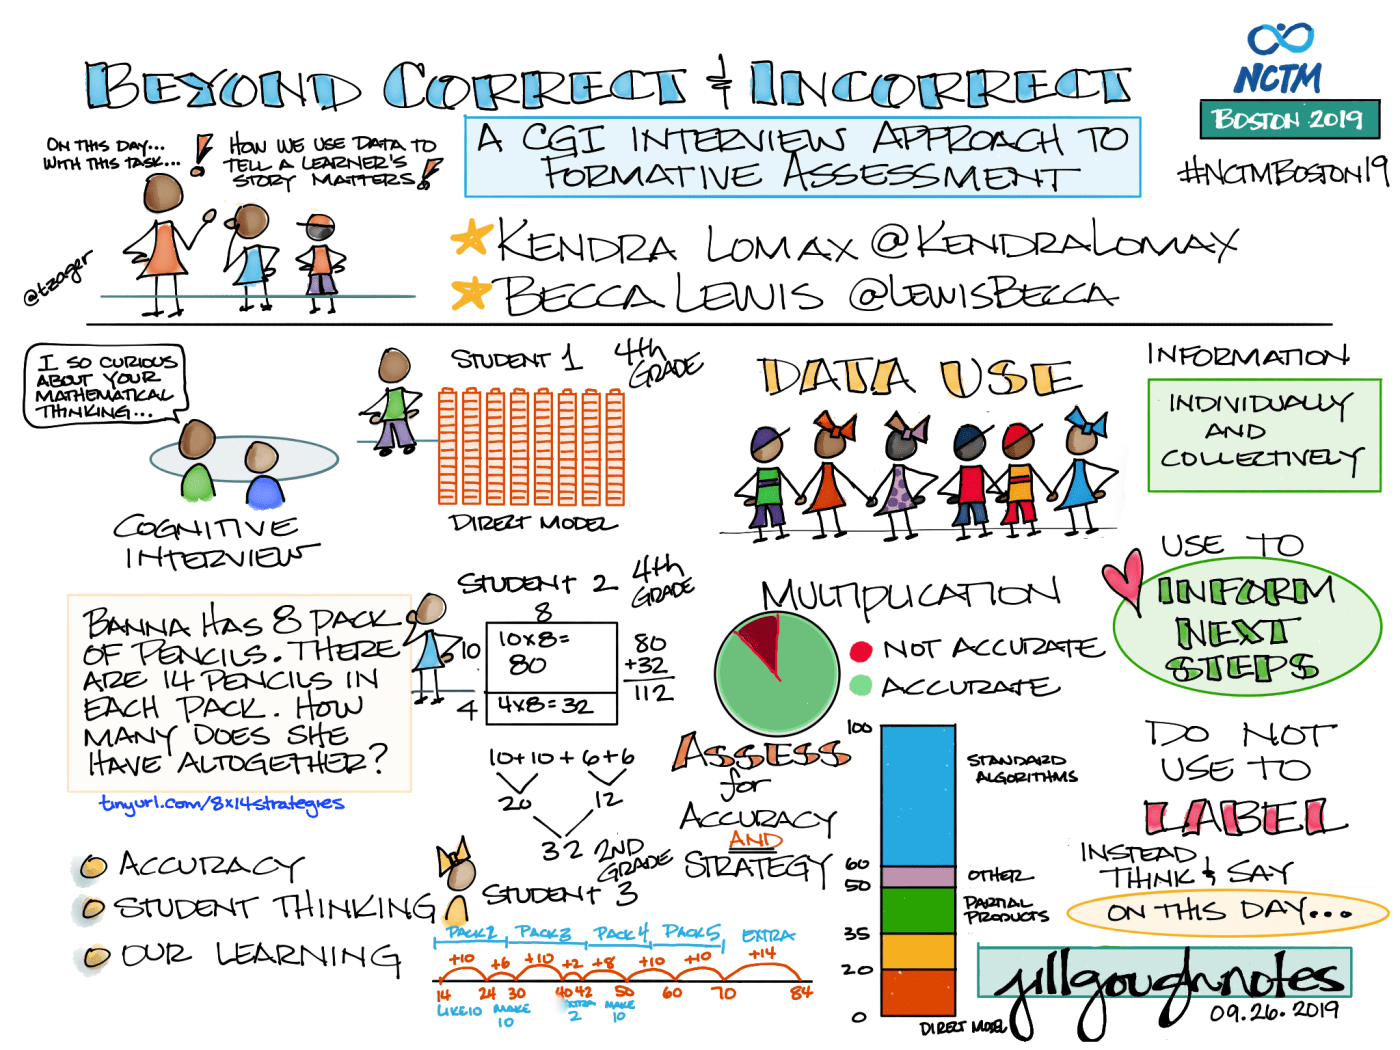 BEYOND CORRECT & INCORRECT
NCTM
BOSTON 2019
#NCTMBOSTON19
A CGI INTERVIEW APPROACH TO
FORMATIVE ASSESSMENT
ON THIS DAY...
WITH THIS TASK...
HOW WE USE DATA TO
TELL A LEARNER'S
STORY MATTERS!
@tzager
KENDRA LOMAX @KENDRALOMAX
BECCA LEWIS @LEWISBECCA
I SO CURIOUS
ABOUT YOUR
MATHEMATICAL
THINKING...
COGNITIVE
INTERVIEW
BANNA HAS 8 PACK
OF PENCILS. THERE
ARE 14 PENCILS IN
EACH PACK. HOW
MANY DOES SHE
HAVE ALTOGETHER?
tinyurl.com/8x14strategies
ACCURACY
STUDENT THINKING
OUR LEARNING
STUDENT 1
4th
GRADE
DIRECT MODEL
STUDENT 2
4th
GRADE
8
10
10x8=
80
4
4x8=32
80
+32
112
10+10+6+6
20
12
32
2ND
GRADE
STUDENT 3
PACK2 PACK3 PACK4 PACK5 EXTRA
+10 +6 +10 +2 +8 +10 +10 +14
14 24 30 40 42 50 60 70 84
LIKE 10
MAKE
10
EXTRA
2
MAKE
10
DATA USE
MULTIPLICATION
NOT ACCURATE
ACCURATE
ASSESS
for
ACCURACY
AND
STRATEGY
100
60
50
35
20
0
STANDARD
ALGORITHMS
OTHER
PARTIAL
PRODUCTS
DIRECT MODEL
INFORMATION
INDIVIDUALLY
AND
COLLECTIVELY
USE TO
INFORM
NEXT
STEPS
DO NOT
USE TO
LABEL
INSTEAD
THINK & SAY
ON THIS DAY...
jillgoughnotes
09.26.2019